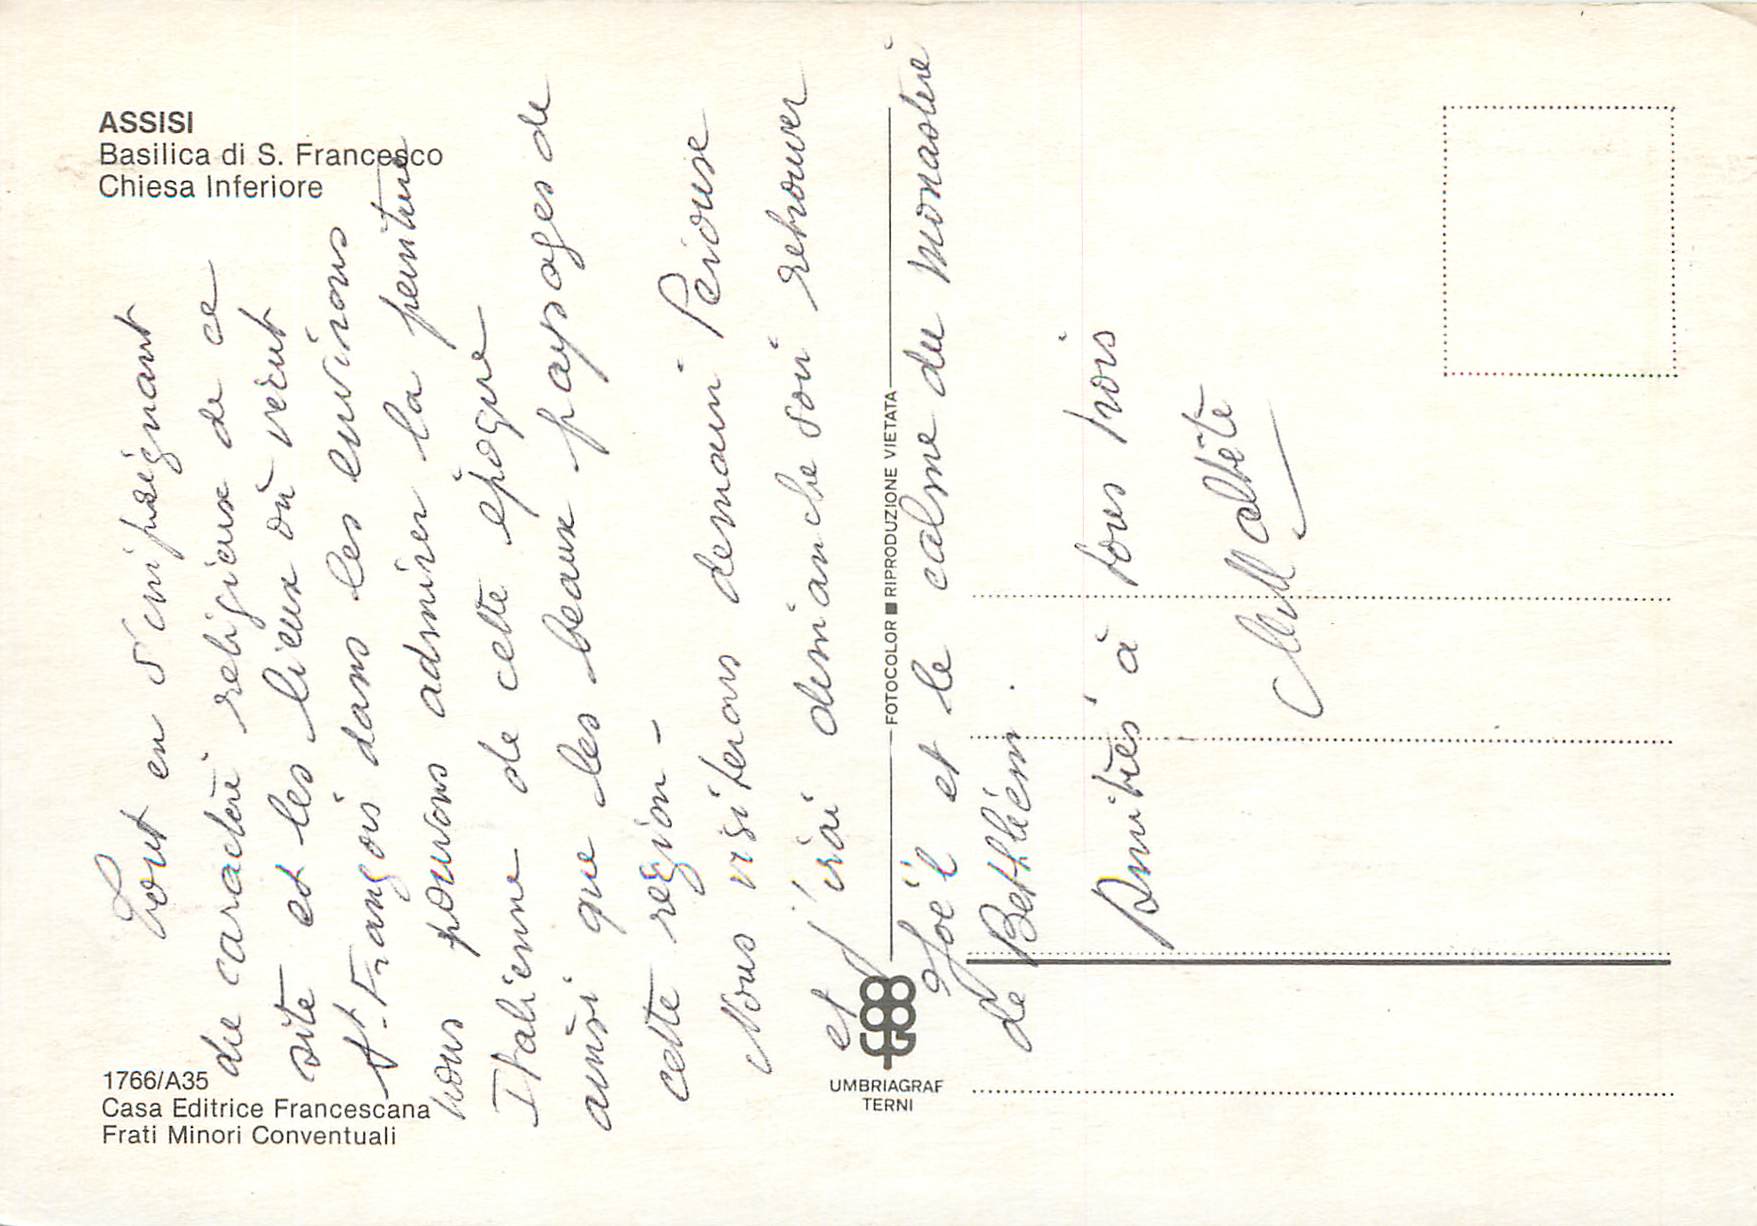 ASSISI
Basilica di S. Francesco
Chiesa Inferiore
Tout en s'imprégnant
du caractère religieux de ce
site et les lieux où vécut
St. François dans les environs
nous pouvons admirer la peinture
Italienne de cette époque
ainsi que les beaux paysages de
cette région -
Nous visiterons demain Pérouse
et j'irai dimanche soir retrouver
Joël et le calme du monastère
de Bethléem.
Amitiés à tous trois
1766/A35
Casa Editrice Francescana
Frati Minori Conventuali
FOTOCOLOR ■ RIPRODUZIONE VIETATA
UMBRIAGRAF
TERNI